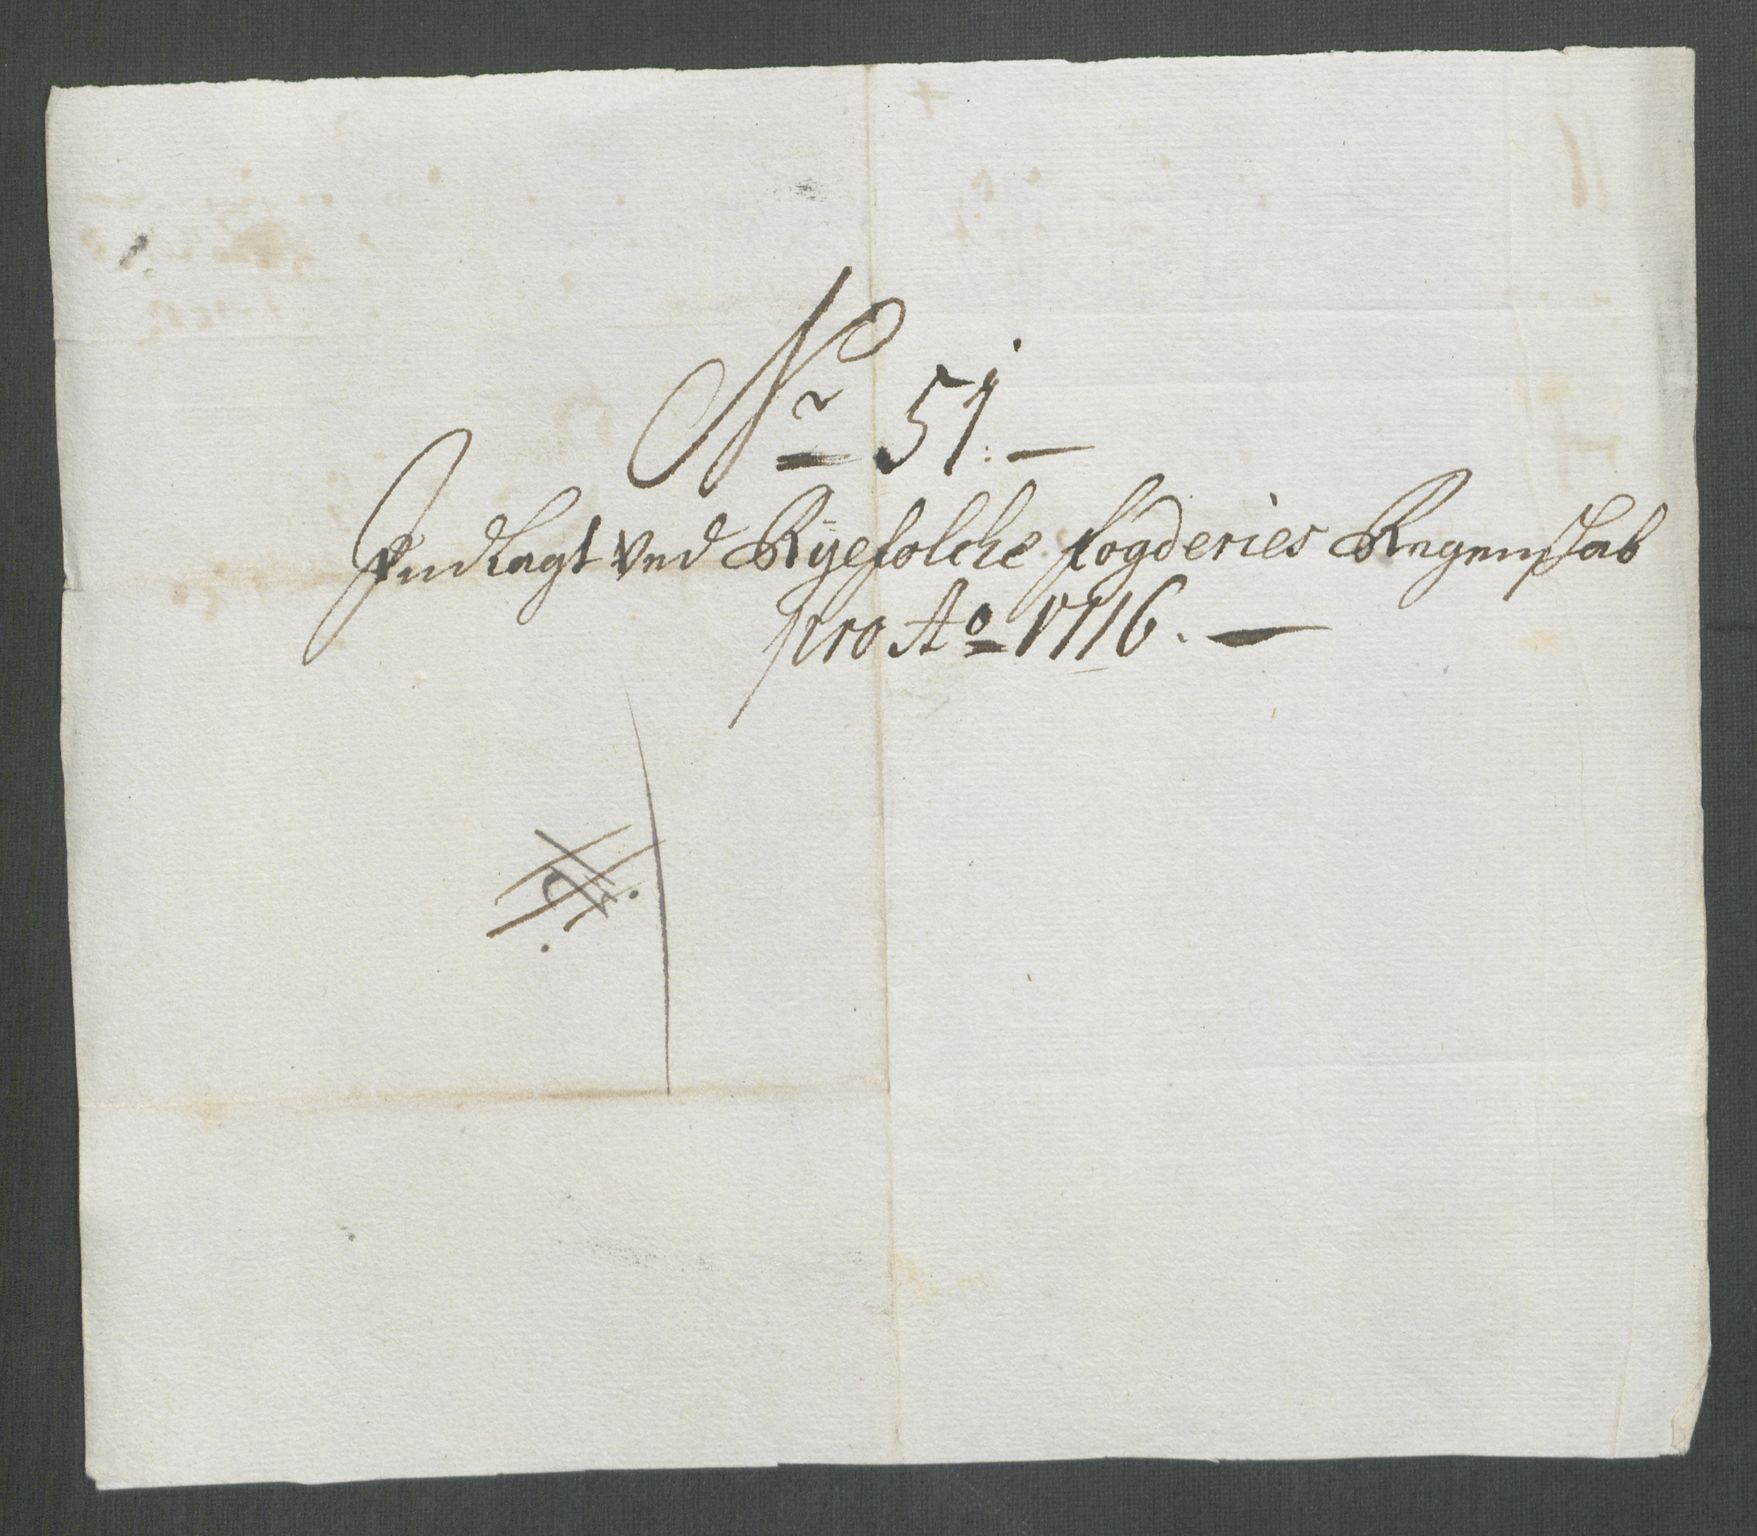 Nr 51.
Indlagt ved Ryefolche fogderies Regenschab
pro Ao 1716.